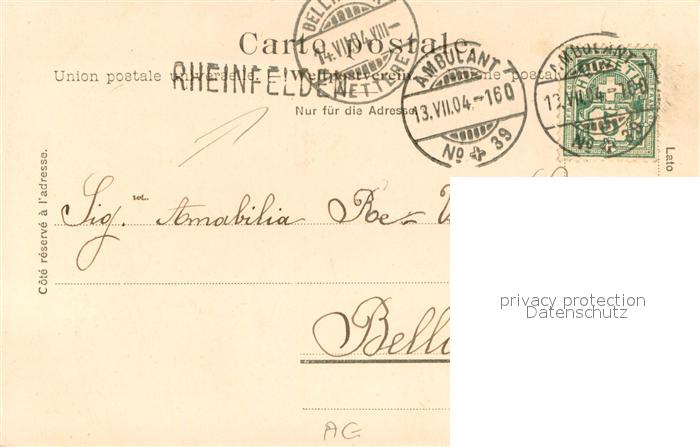 Carte postale.
Union postale universelle. — Weltpostverein. — postale
RHEINFELDEN
Nur für die Adresse.
BELLINZ
14.VII.04.VIII–
LETTERE
AMBULANT
13.VII.04.–16Q
No 39
AMBULANT
13.VII.04.–16Q
No 39
HELVETIA
5
Côté réservé à l'adresse.
Lato
Sig. Amabilia Re-
Belli
privacy protection
Datenschutz
AG